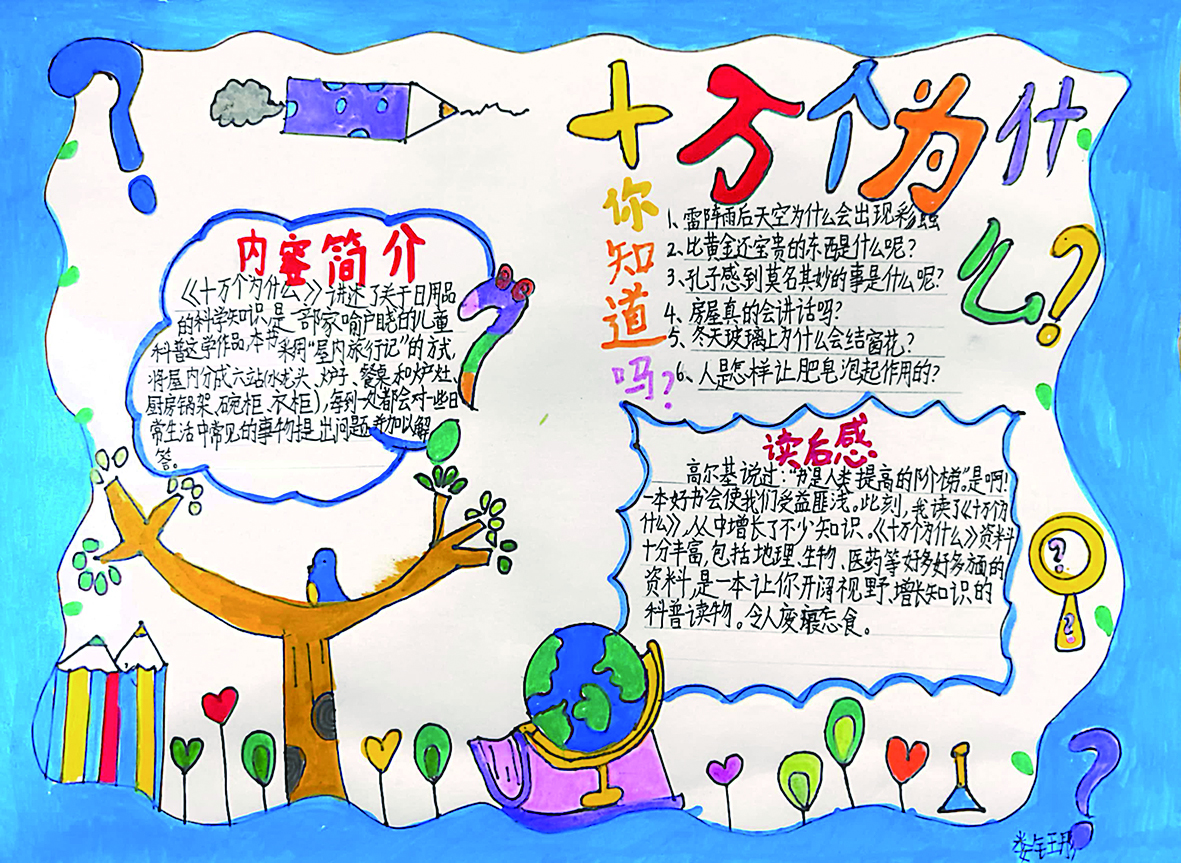 十万个为什么?
你知道吗?
1、雷阵雨后天空为什么会出现彩虹
2、比黄金还宝贵的东西是什么呢?
3、孔子感到莫名其妙的事是什么呢?
4、房屋真的会讲话吗?
5、冬天玻璃上为什么会结窗花?
6、人是怎样让肥皂泡起作用的?
内容简介
《十万个为什么》讲述了关于日用品
的科学知识,是一部家喻户晓的儿童
科普文学作品,本书采用“屋内旅行记”的方式,
将屋内分成六站(水龙头、炉子、餐桌和炉灶、
厨房锅架、碗柜、衣柜),每到一处都会对一些日
常生活中常见的事物提出问题并加以解
答。
读后感
高尔基说过:“书是人类提高的阶梯”是啊!
一本好书会使我们受益匪浅。此刻,我读了《十万个为
什么》,从中增长了不少知识。《十万个为什么》资料
十分丰富,包括地理、生物、医药等好多好多方面的
资料,是一本让你开阔视野、增长知识的
科普读物。令人废寝忘食。